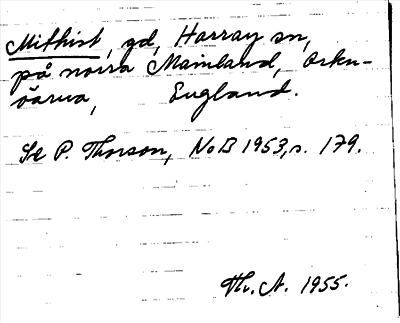 Mithist, gd, Harray sn,
på norra Mainland, Orkn-
öarna, England.
Se P. Thorson, NoB 1953, s. 179.
Th. A. 1955.